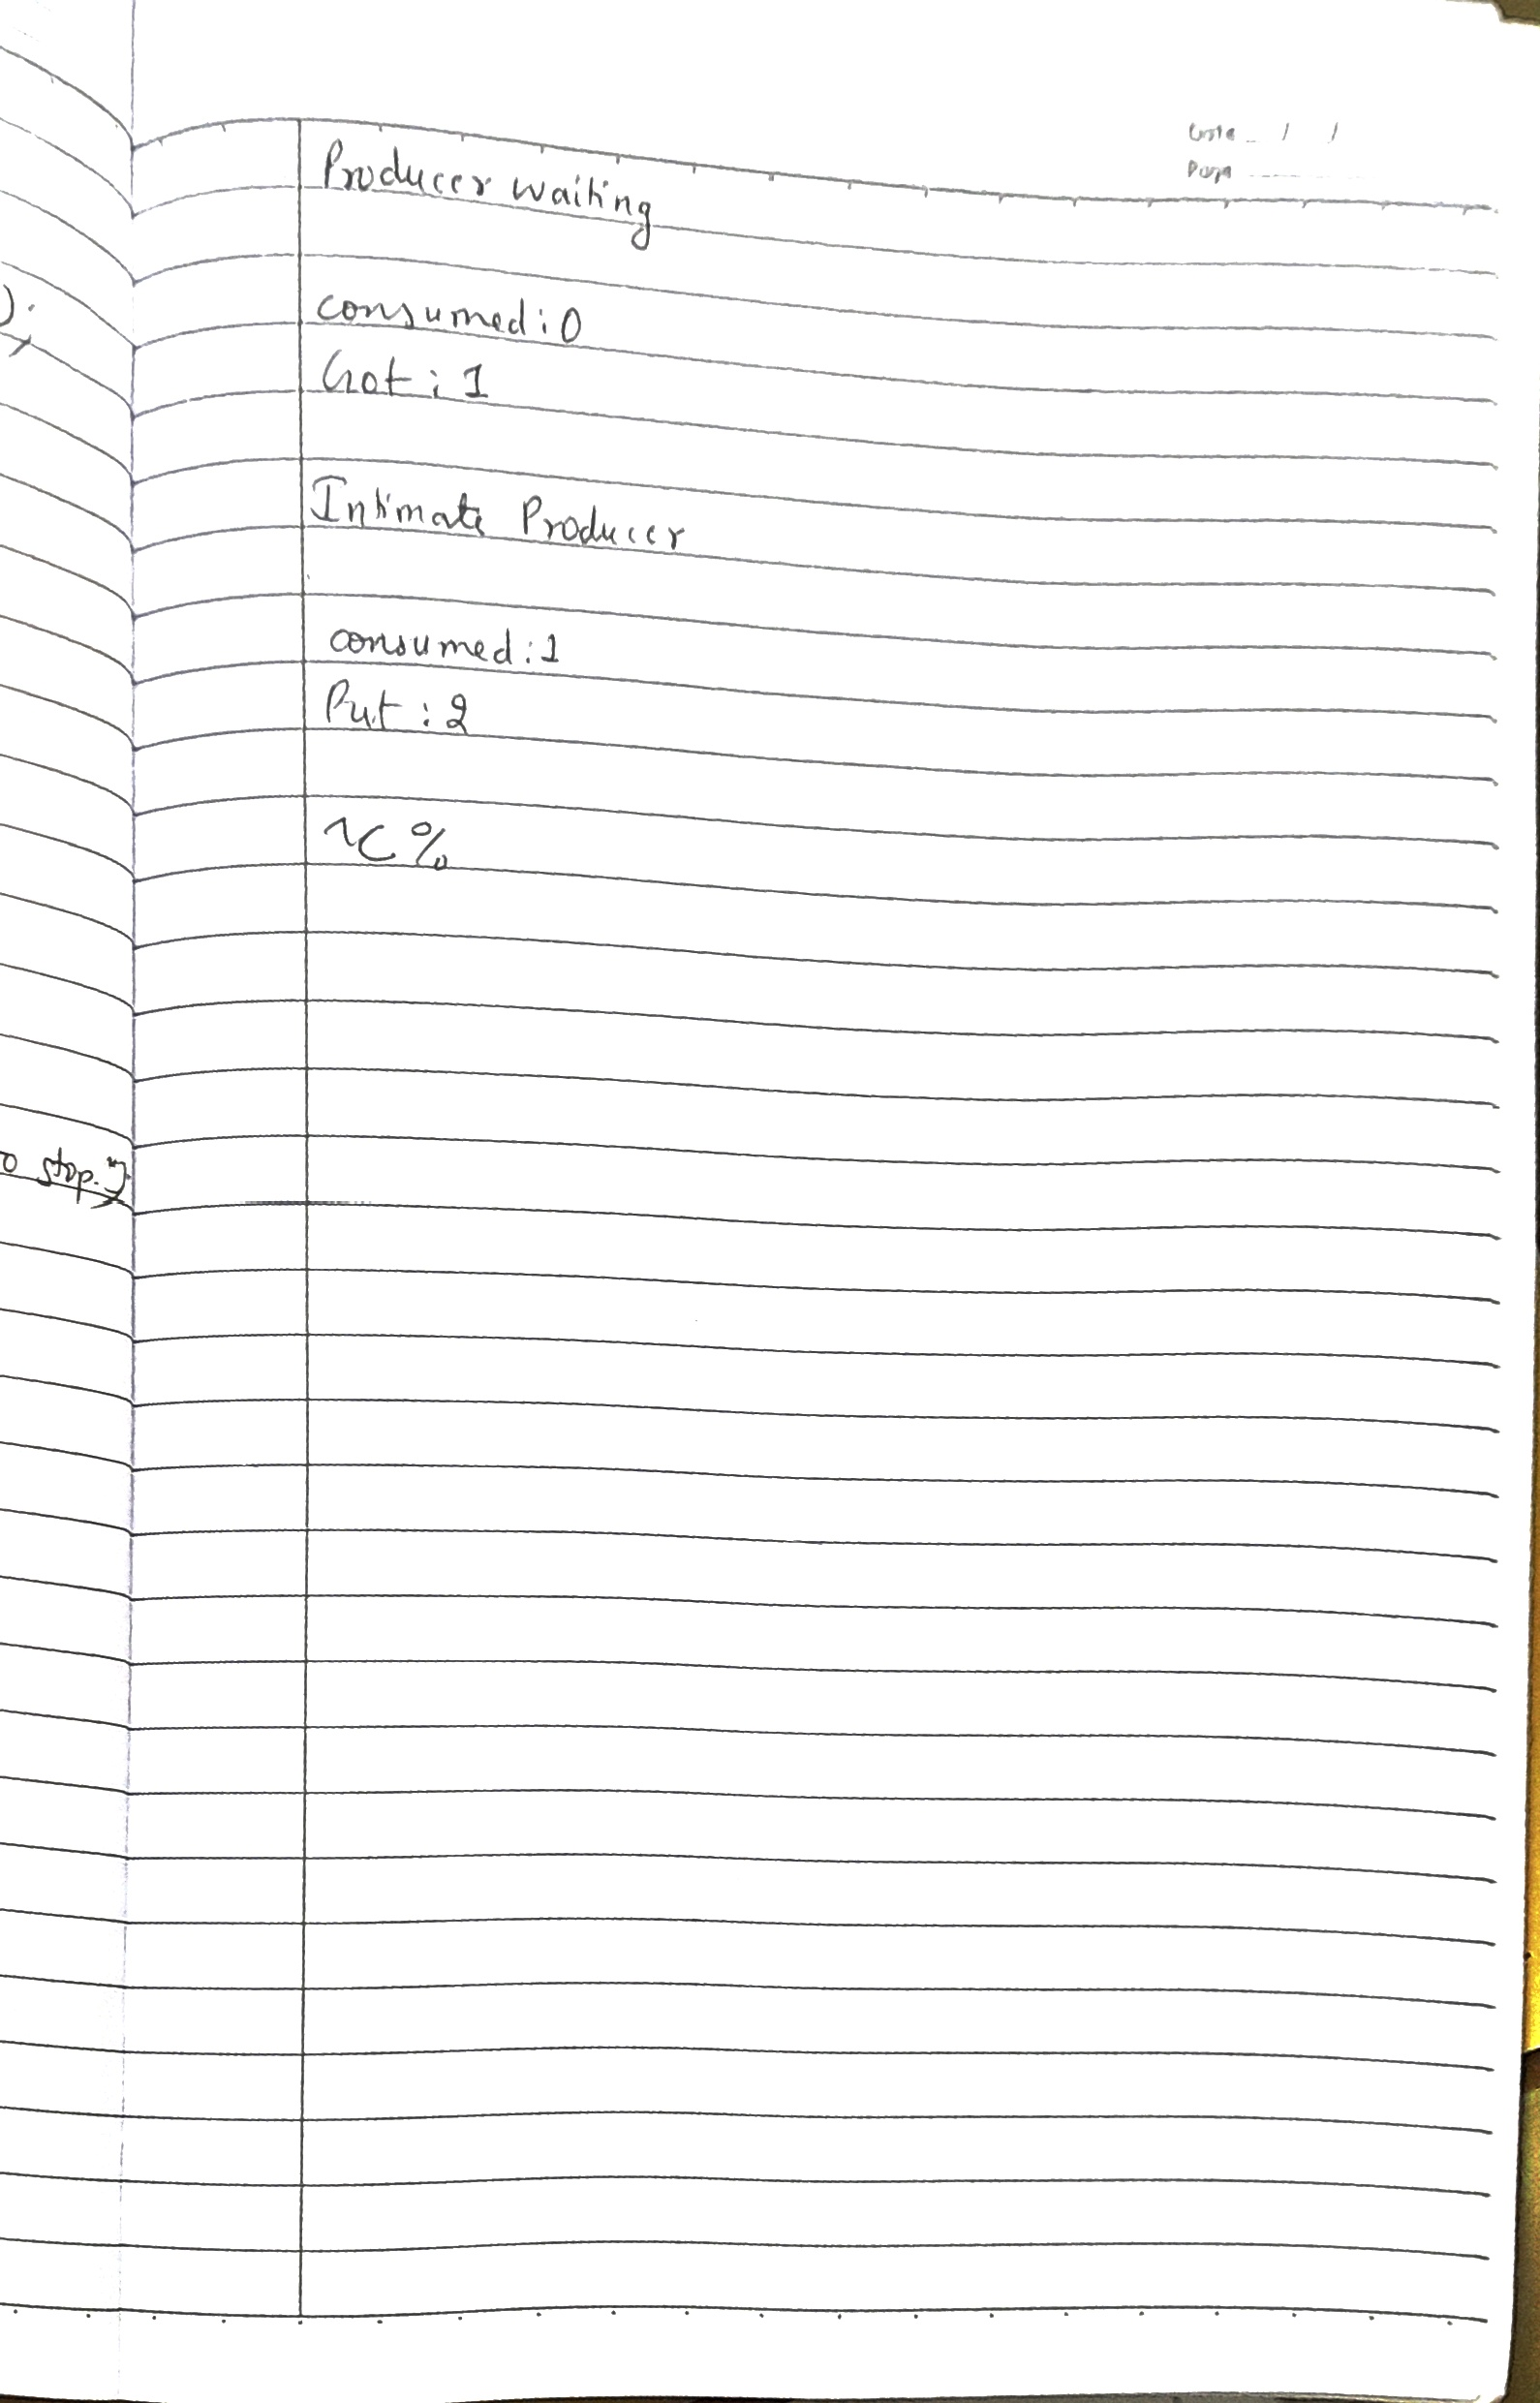 Date / /
Page
Producer waiting
consumed: 0
Got: 1
Intimate Producer
consumed: 1
Put: 2
^C%
stop.");
);